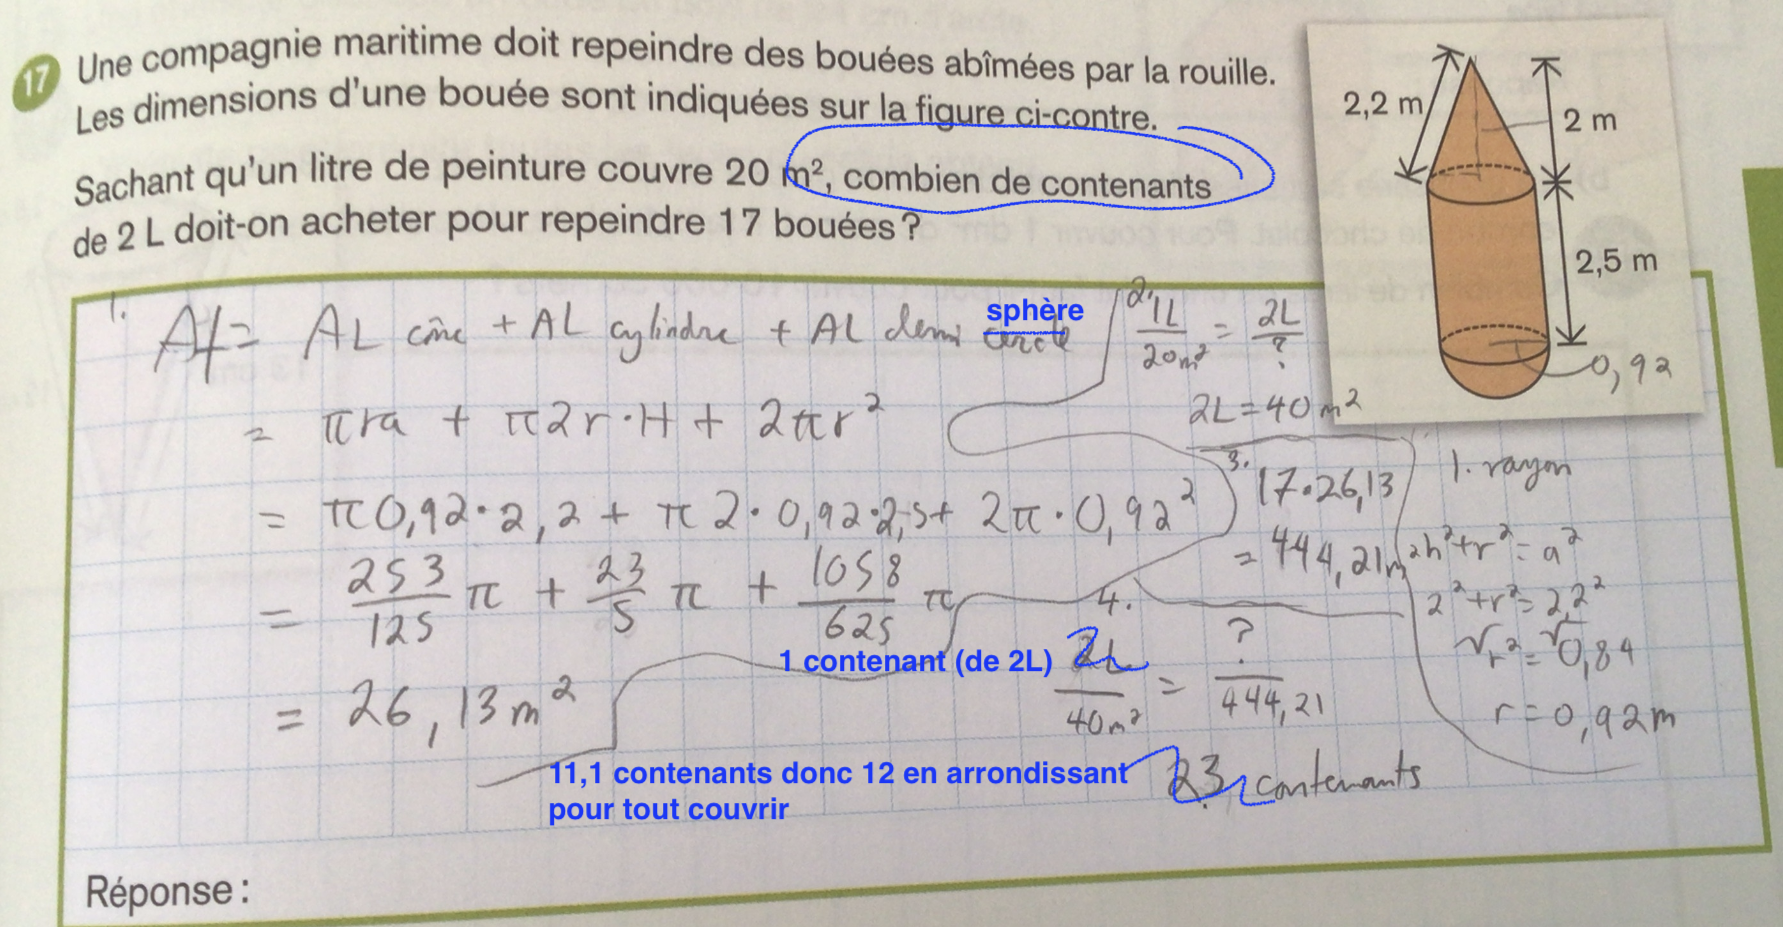 17 Une compagnie maritime doit repeindre des bouées abîmées par la rouille.
Les dimensions d'une bouée sont indiquées sur la figure ci-contre.
Sachant qu'un litre de peinture couvre 20 m², combien de contenants
de 2 L doit-on acheter pour repeindre 17 bouées ?
2,2 m
2 m
2,5 m
0,92
1.
At = AL cône + AL cylindre + AL demi cercle
sphère
= πra + π2r·H + 2πr²
= π0,92·2,2 + π2·0,92·2,5 + 2π·0,92²
= 253/125 π + 23/5 π + 1058/625 π
= 26,13 m²
2. 1L/20m² = 2L/?
2L = 40 m²
3. 17·26,13
= 444,21m²
1. rayon
h²+r²=a²
2²+r²=2,2²
√r²=√0,84
r=0,92m
4.
1 contenant (de 2L) 2L/40m² = ?/444,21
11,1 contenants donc 12 en arrondissant
pour tout couvrir
23 contenants
Réponse :